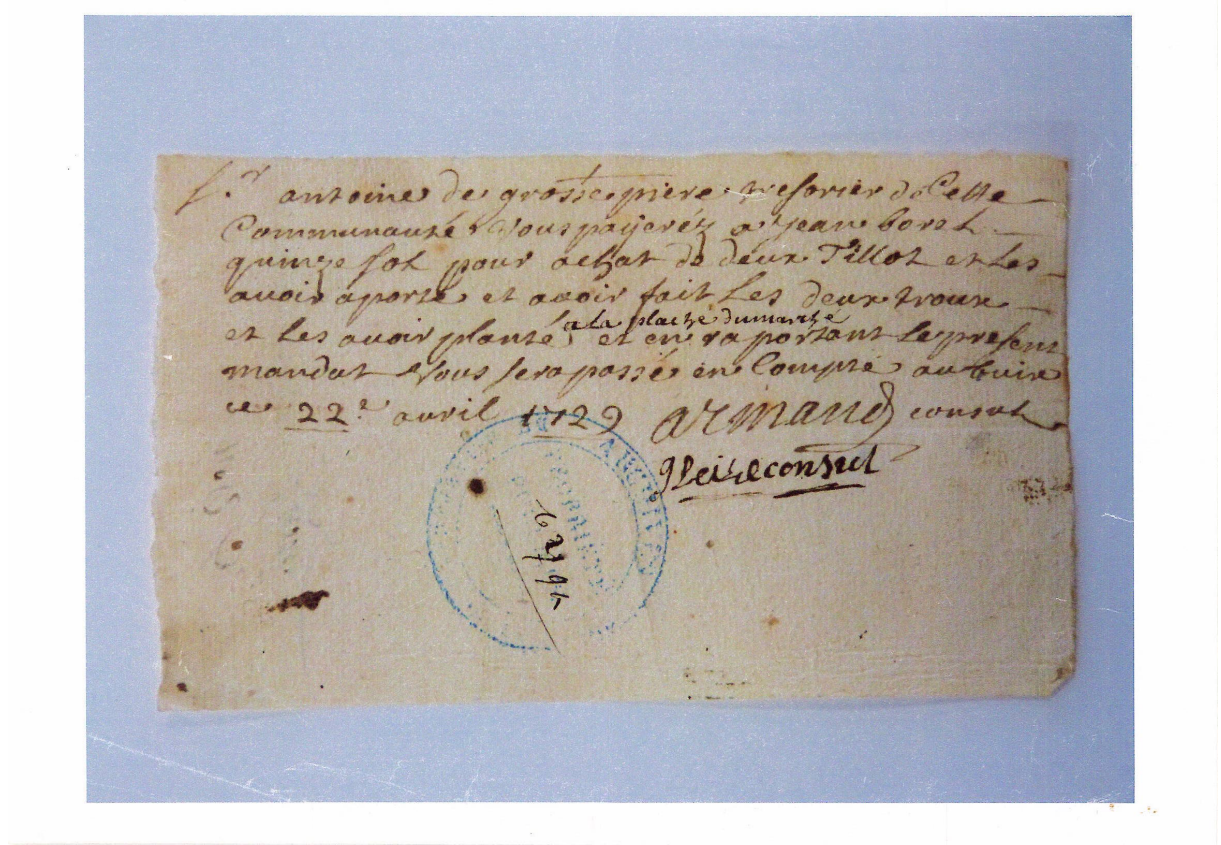 S.r antoine de grossepiere tresorier de Cette
Communauté vous payeréz a jean borel
quinze sol pour achat de deux Tillot et Les
avoir aporté et avoir fait Les deux troux
a la plache du marché
et Les avoir planté et en raportant Le present
mandat vous sera passé en Compte au buix
ce 22.e avril 1729 armand consul
consul
ARCHIVES
PROPRIÉTÉ